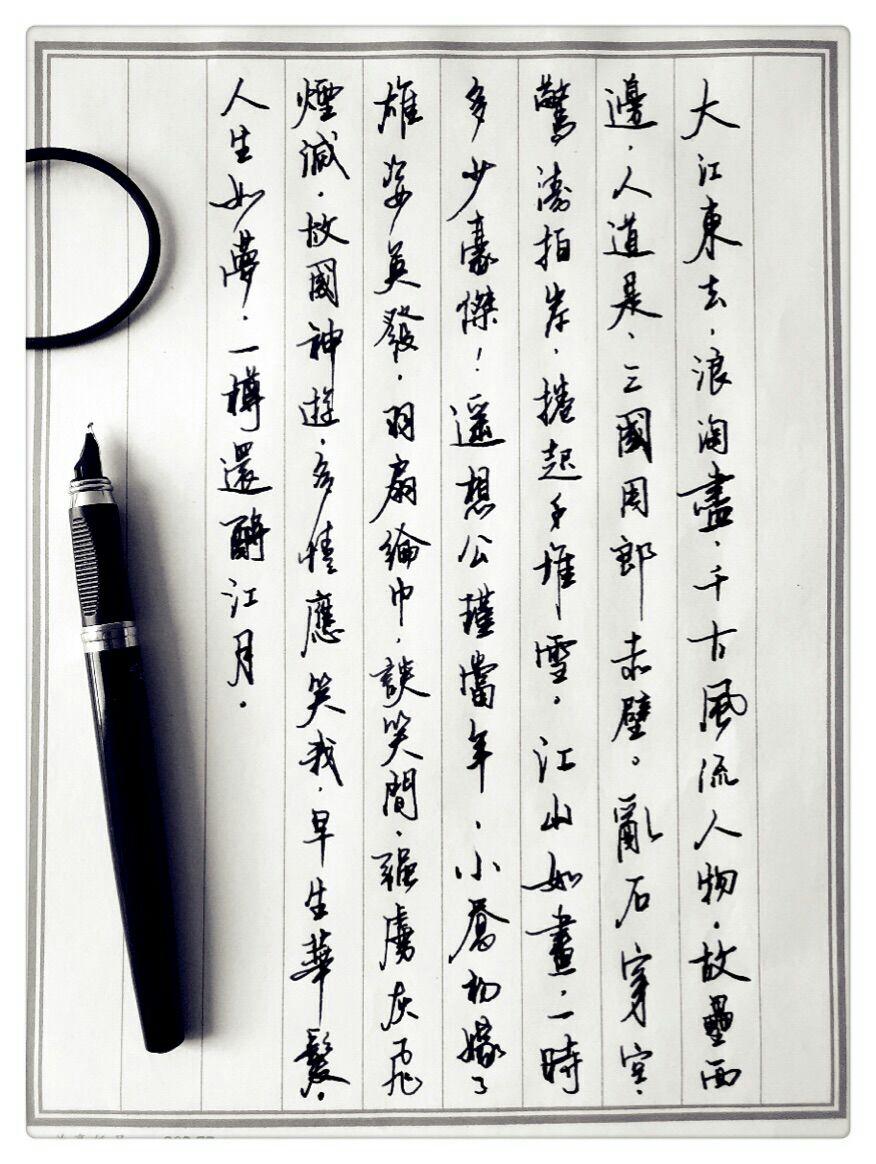 大江東去，浪淘盡，千古風流人物。故壘西
邊，人道是、三國周郎赤壁。亂石穿空，
驚濤拍岸，捲起千堆雪。江山如畫，一時
多少豪傑！遙想公瑾當年，小喬初嫁了
雄姿英發，羽扇綸巾，談笑間、强虜灰飛
煙滅。故國神遊，多情應笑我，早生華髮。
人生如夢，一樽還酹江月。